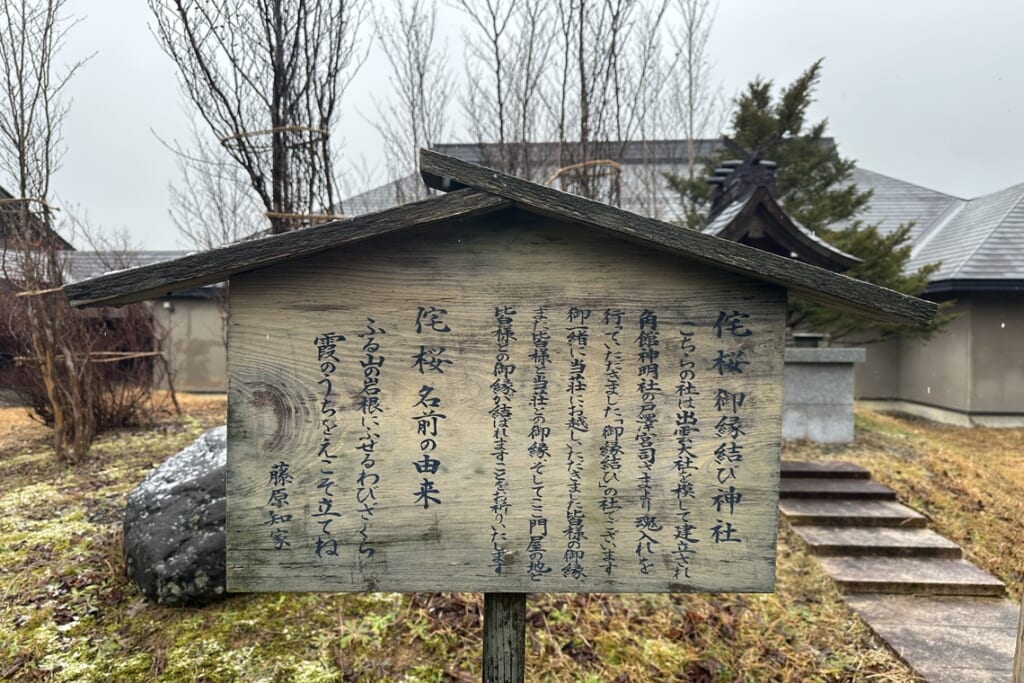 侘桜 御縁結び神社
こちらの社は出雲大社を模して建立され
角館神明社の戸澤宮司さまより魂入れを
行っていただきました「御縁結び」の社でございます
御一緒に当荘にお越しいただきました皆様の御縁、
また皆様と当荘との御縁、そしてここ門屋の地と
皆様との御縁が結ばれますことをお祈りいたします
侘桜 名前の由来
ふる山の岩根にふせるわびざくら
霞のうちをえこそ立てね
藤原知家